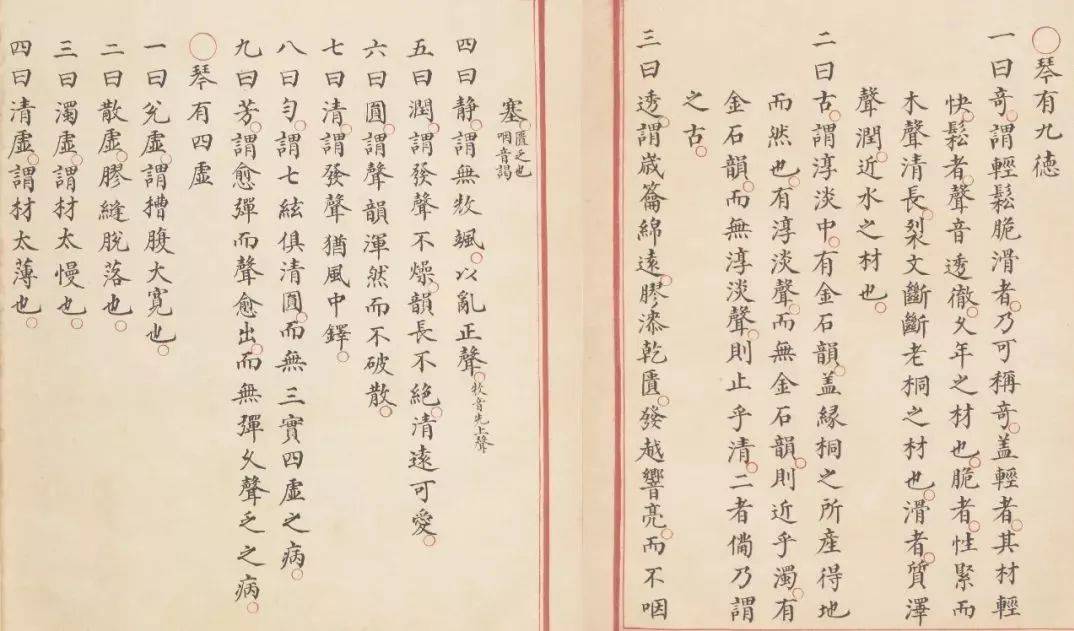 ○琴有九德
一曰竒。謂輕鬆脆滑者。乃可稱竒。盖輕者。其材輕
快。鬆者。聲音透徹。乆年之材也。脆者。性緊而
木聲清長。裂文斷斷。老桐之材也。滑者。質澤
聲潤。近水之材也。
二曰古。謂淳淡中。有金石韻。盖縁桐之所産得地
而然也。有淳淡聲。而無金石韻。則近乎濁。有
金石韻。而無淳淡聲。則止乎清。二者備乃謂
之古。
三曰透。謂歲籥綿遠。膠漆乾匱。發越響亮。而不咽
塞。匱乏也
咽音謁
四曰静。謂無颯。以亂正聲。音先上聲
五曰潤。謂發聲不燥。韻長不絶。清遠可愛。
六曰圓。謂聲韻渾然而不破散。
七曰清。謂發聲猶風中鐸。
八曰匀。謂七絃俱清圓。而無三實四虚之病。
九曰芳。謂愈彈而聲愈出。而無彈乆聲乏之病。
○琴有四虚
一曰兊虚。謂槽腹大寛也。
二曰散虚。膠縫脫落也。
三曰濁虚。謂材太慢也。
四曰清虚。謂材太薄也。